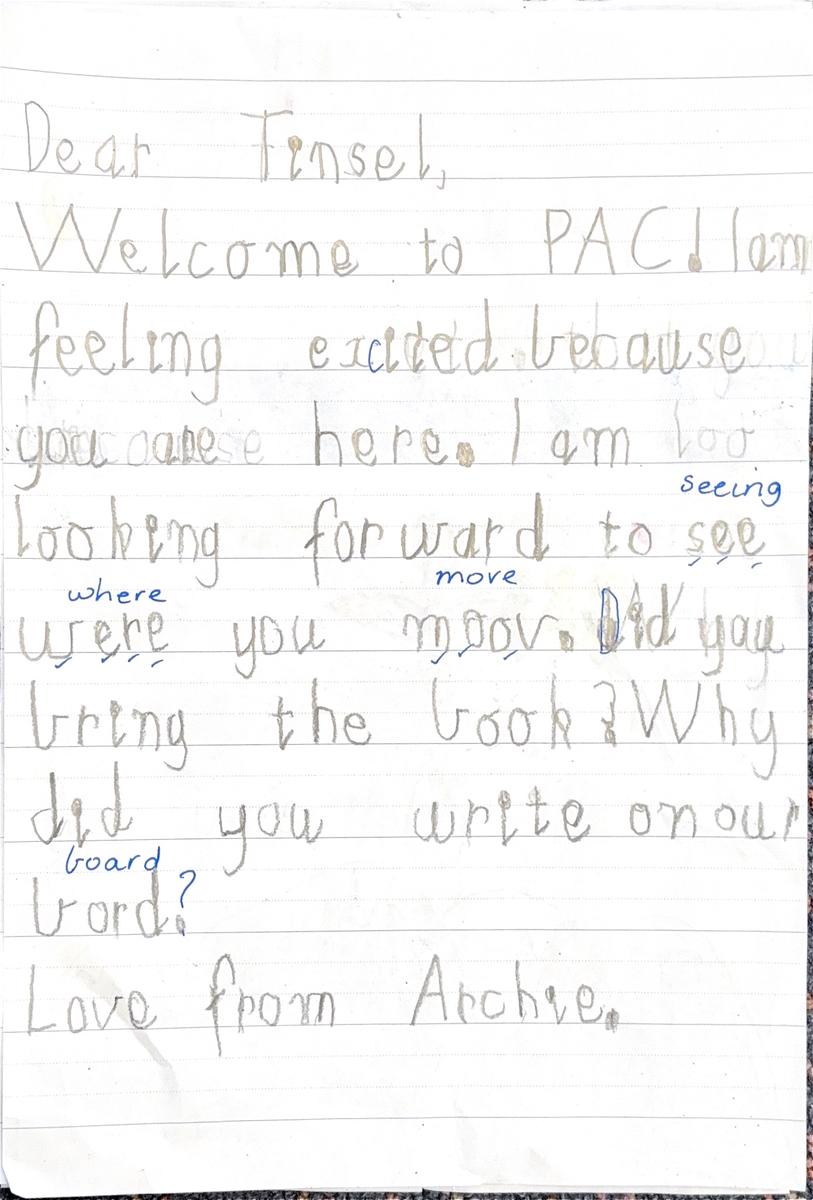 Dear Tinsel,
Welcome to PAC! I am
feeling excited because
you are here. I am loo
seeing
looking forward to see
where move
were you moov. Did you
bring the book? Why
did you write on our
board
bord?
Love from Archie.